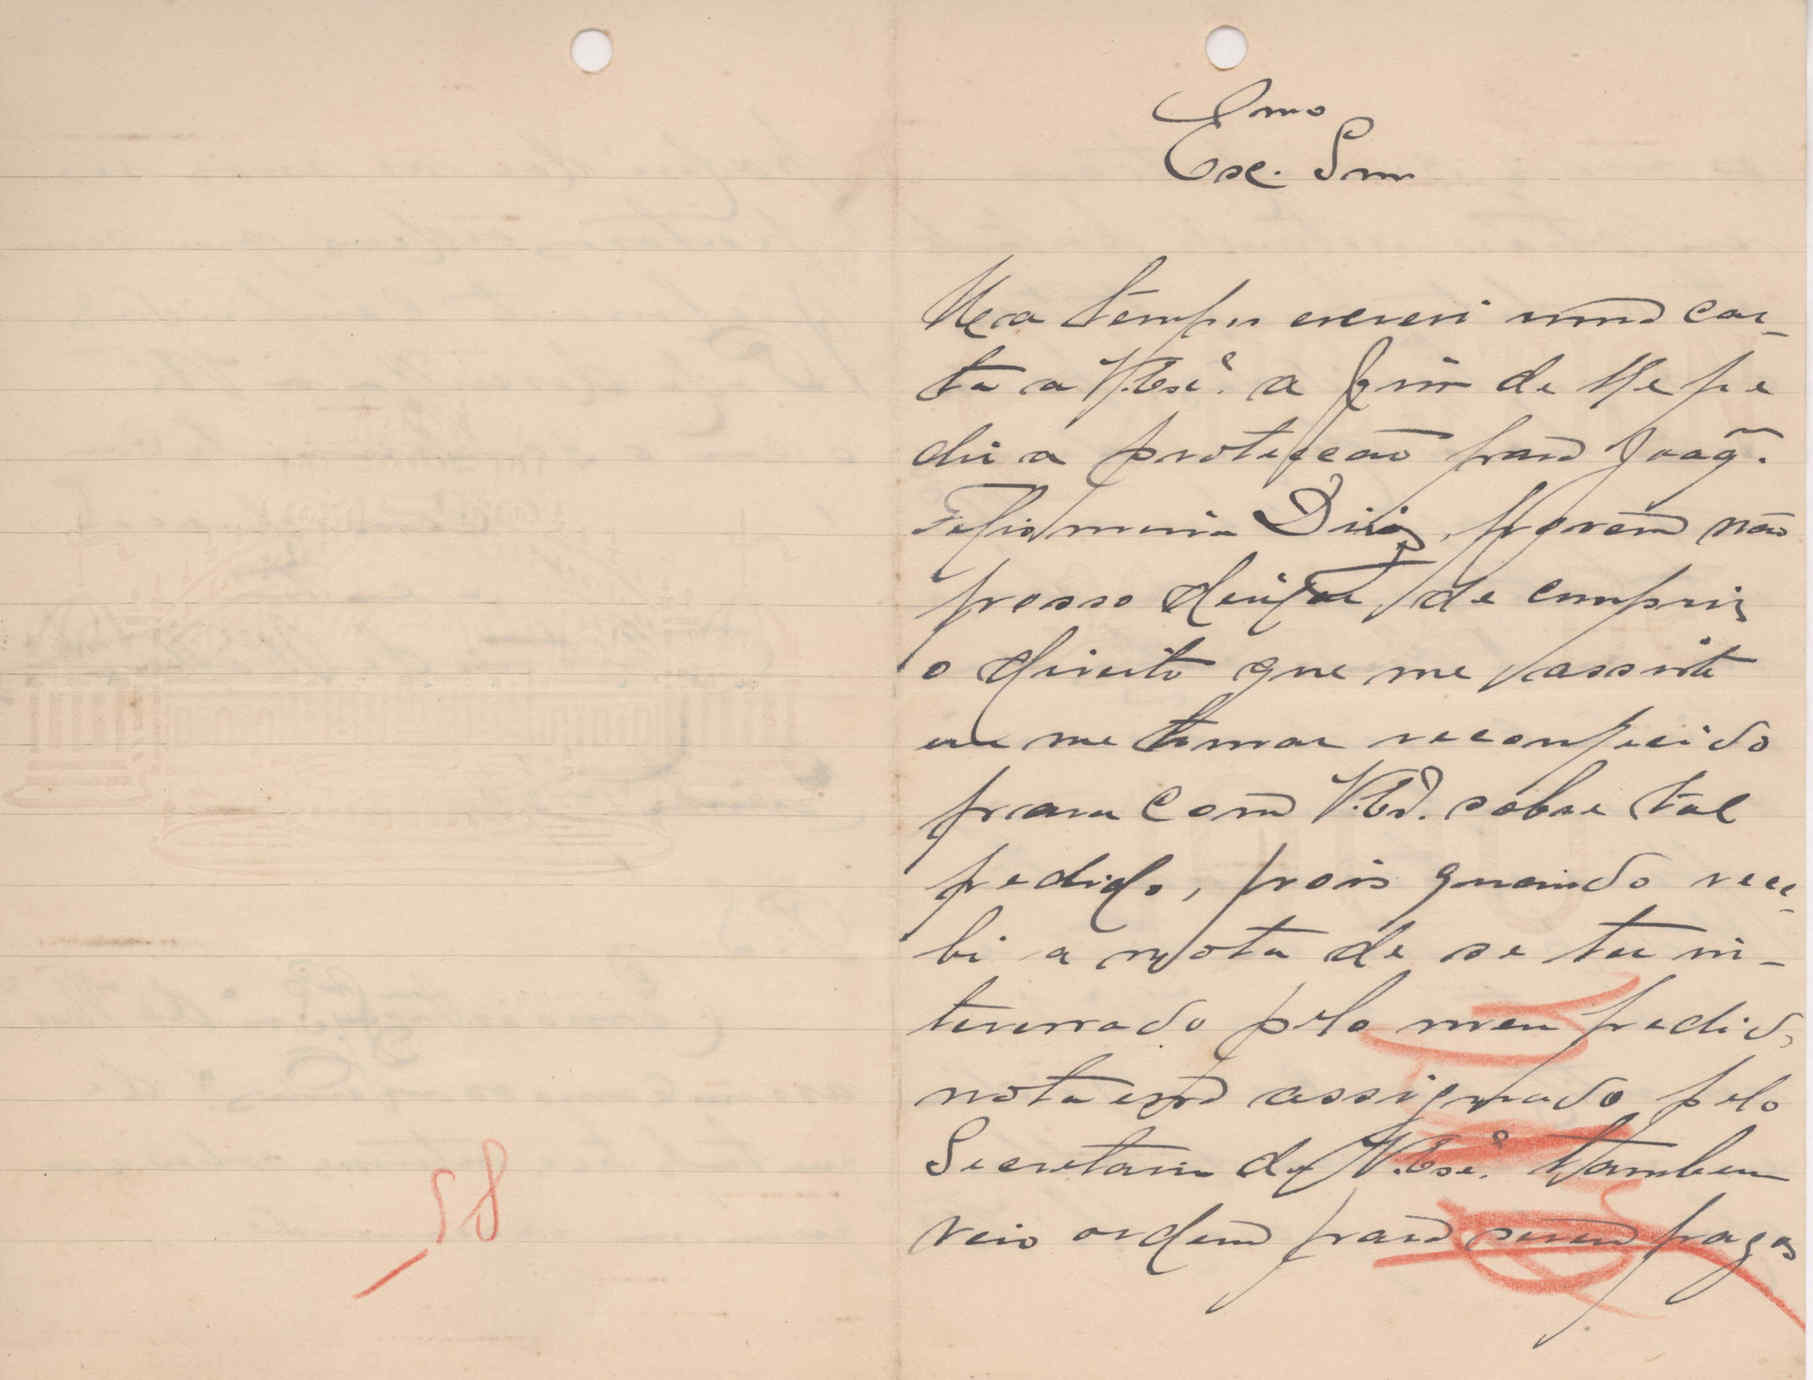 Exmo
Exc. Snr
Há tempu escrevi uma car-
ta a V. Exc.ª a fim de lhe pe
dir a protecção para Joaq.m
Dias, porem não
posso deixar de cumprir
o direito que me assiste
em me tornar reconhecido
para com V. Ex.ª sobre tal
pedido, pois quando rece-
bi a nota de se ter in-
teressado pelo meu pedido,
nota esta assignado pelo
Secretario de V. Exc.ª tambem
veio ordem para serem pagos
58